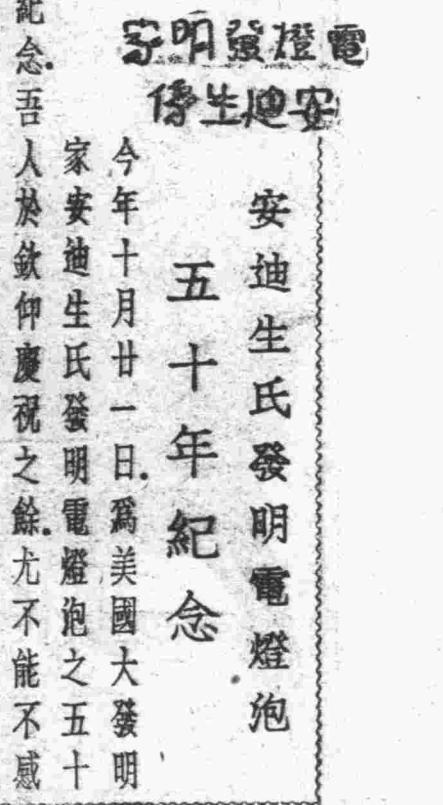 電燈發明家
安迪生傳
安迪生氏發明電燈泡
五十年紀念
今年十月廿一日.爲美國大發明
家安迪生氏發明電燈泡之五十
紀念.吾人於欽仰慶祝之餘.尤不能不感